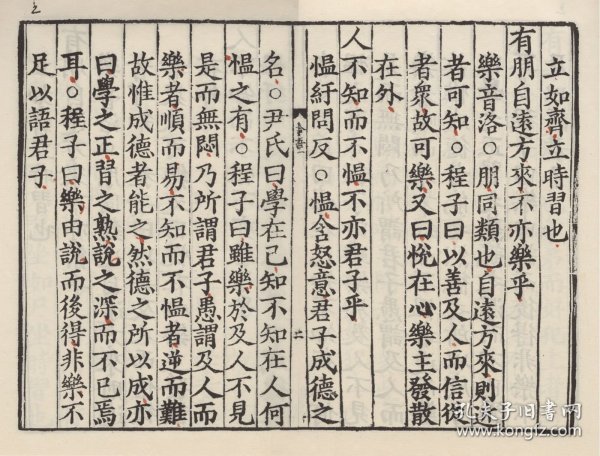 立如齊立時習也
有朋自遠方來不亦樂乎
樂音洛○朋同類也自遠方來則近
者可知○程子曰以善及人而信從
者衆故可樂又曰悅在心樂主發散
在外
人不知而不慍不亦君子乎
慍紆問反○慍含怒意君子成德之
名○尹氏曰學在己知不知在人何
慍之有○程子曰雖樂於及人不見
是而無悶乃所謂君子愚謂及人而
樂者順而易不知而不慍者逆而難
故惟成德者能之然德之所以成亦
曰學之正習之熟說之深而不已焉
耳○程子曰樂由說而後得非樂不
足以語君子
孔夫子旧书网
www.kongfz.com